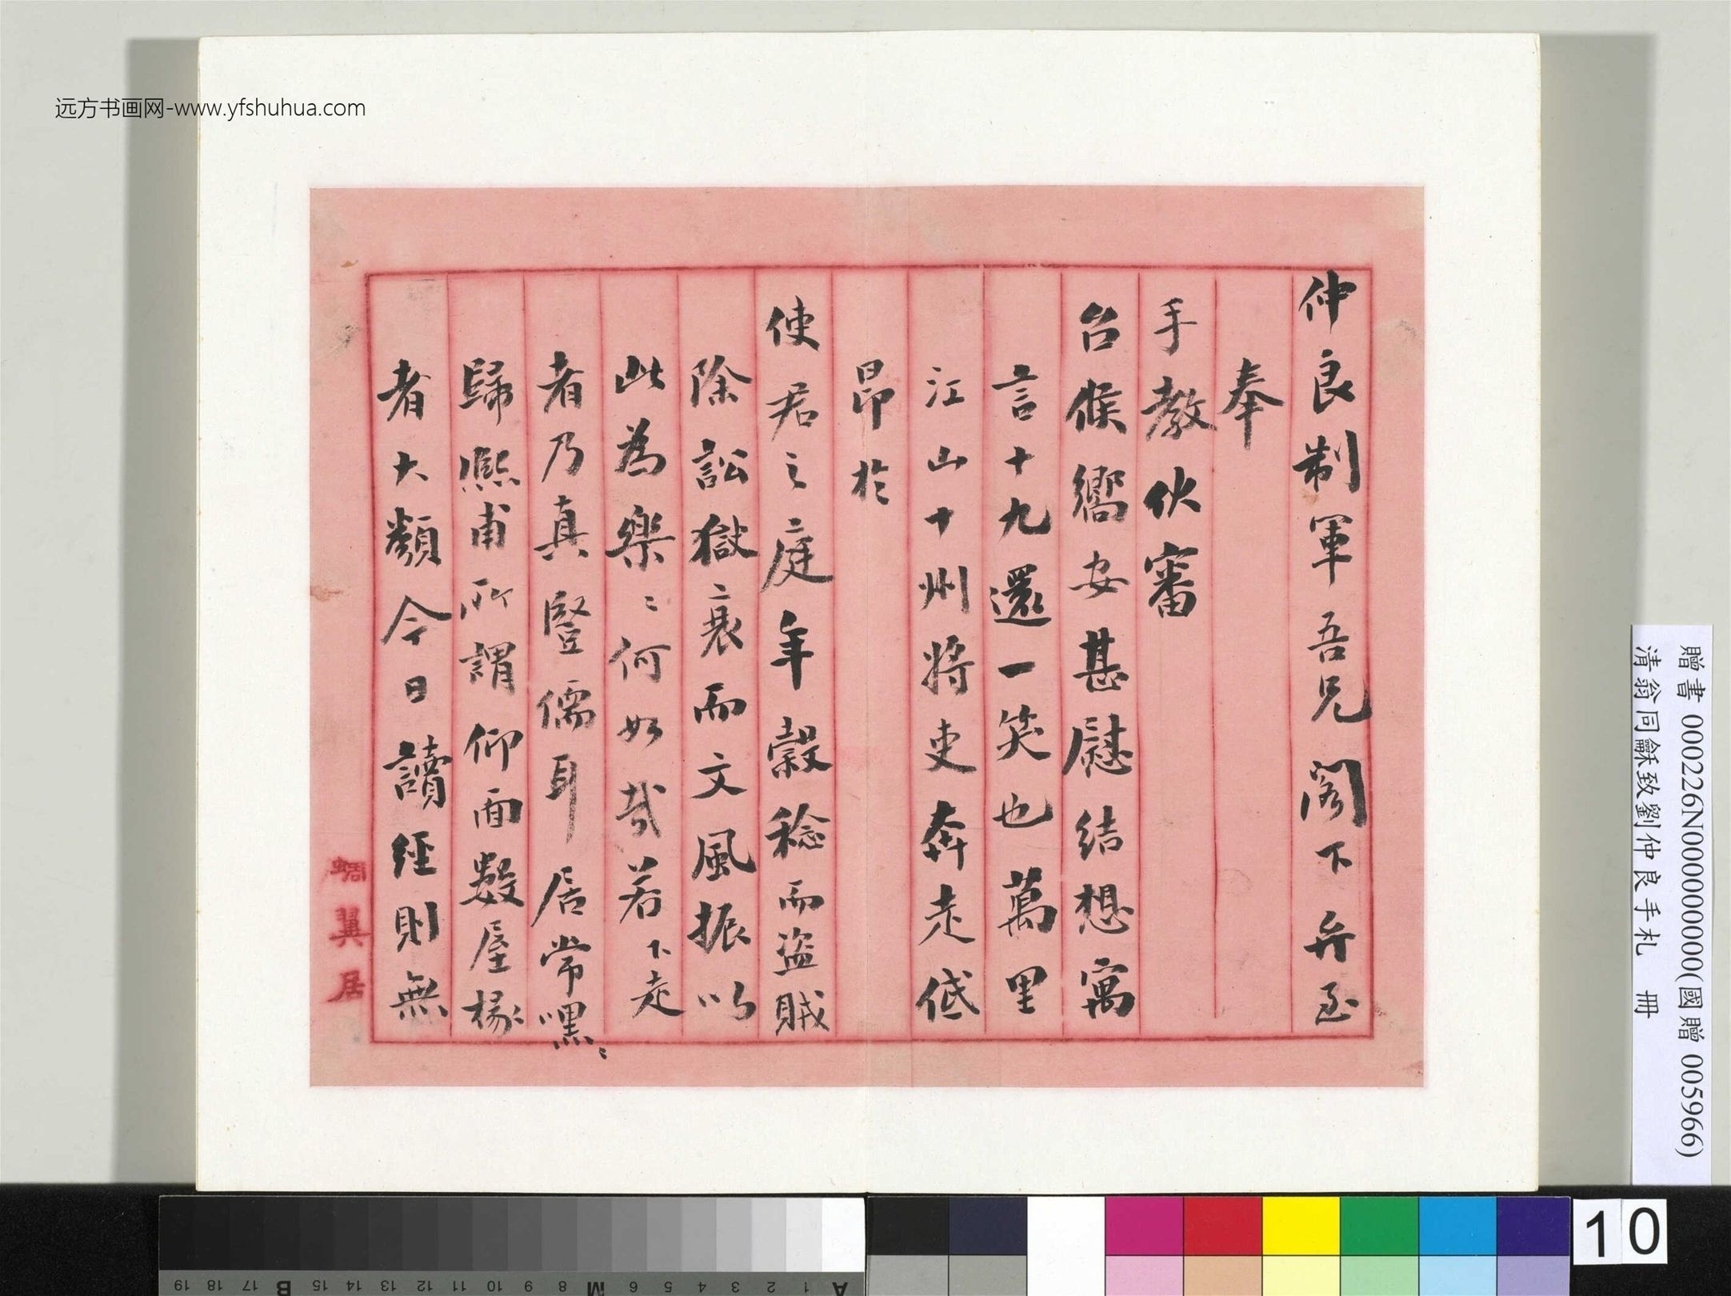 远方书画网-www.yfshuhua.com
仲良制軍吾兄閣下弁至
奉
手教伏審
台候嚮安甚慰結想寓
言十九還一笑也萬里
江山十州將吏奔走低
昂於
使君之庭年穀稔而盜賊
除訟獄衰而文風振以
此為樂〻何如哉若下走
者乃真豎儒耳居常嘿〻
歸熙甫所謂仰面數屋椽
者大類今日讀經則無
蜩翼居
贈書 000226N000000000(國贈 005966)
清翁同龢致劉仲良手札 冊
10
A 1 2 3 4 5 6 M 8 9 10 11 12 13 14 15 B 17 18 19